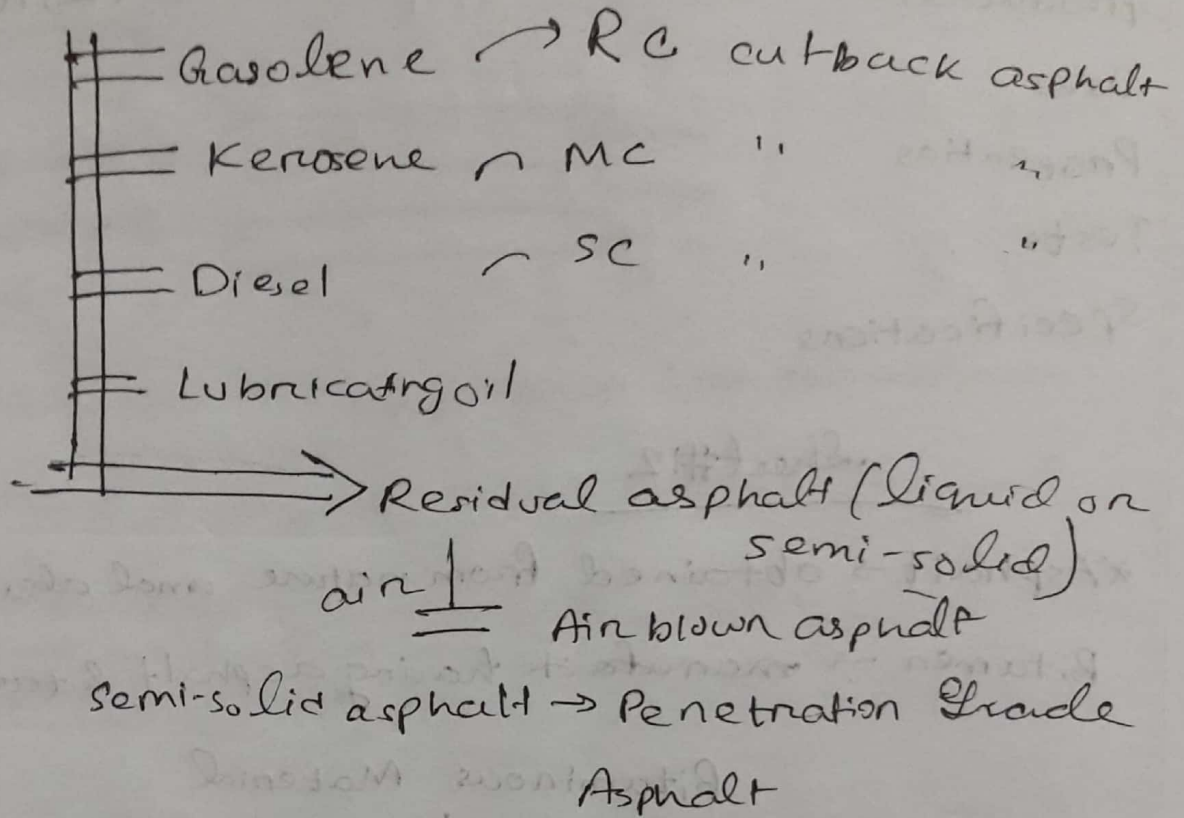 Gasolene → RC cutback asphalt
Kerosene MC " "
Diesel SC " "
Lubricating oil
Residual asphalt (liquid or
semi-solid)
air
Air blown asphalt
semi-solid asphalt → Penetration Grade
Asphalt